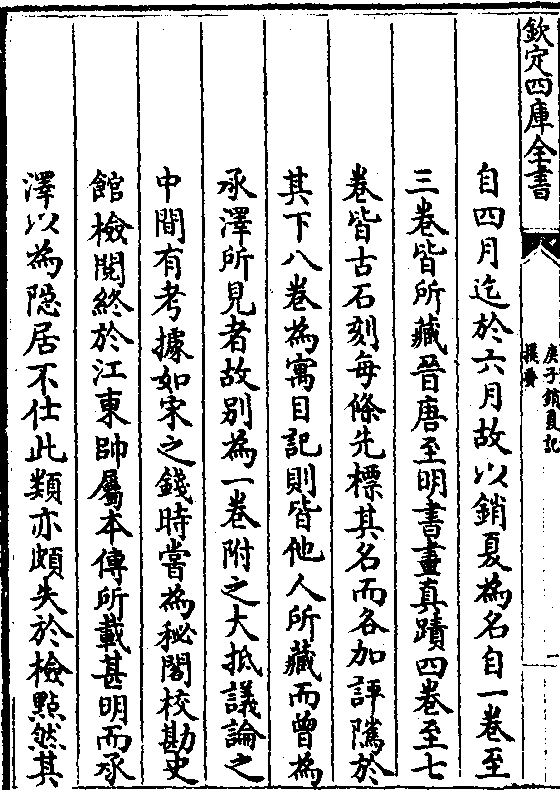 欽定四庫全書
庚子銷夏記
提要
一
自四月迄於六月故以銷夏為名自一卷至
三卷皆所藏晉唐至明書畫真蹟四卷至七
卷皆古石刻每條先標其名而各加評隲於
其下八卷為寓目記則皆他人所藏而曾為
承澤所見者故別為一卷附之大抵議論之
中間有考據如宋之錢時嘗為秘閣校勘史
館檢閱終於江東帥屬本傳所載甚明而承
澤以為隠居不仕此類亦頗失於檢點然其